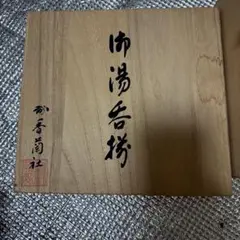 御湯呑揃
香蘭社